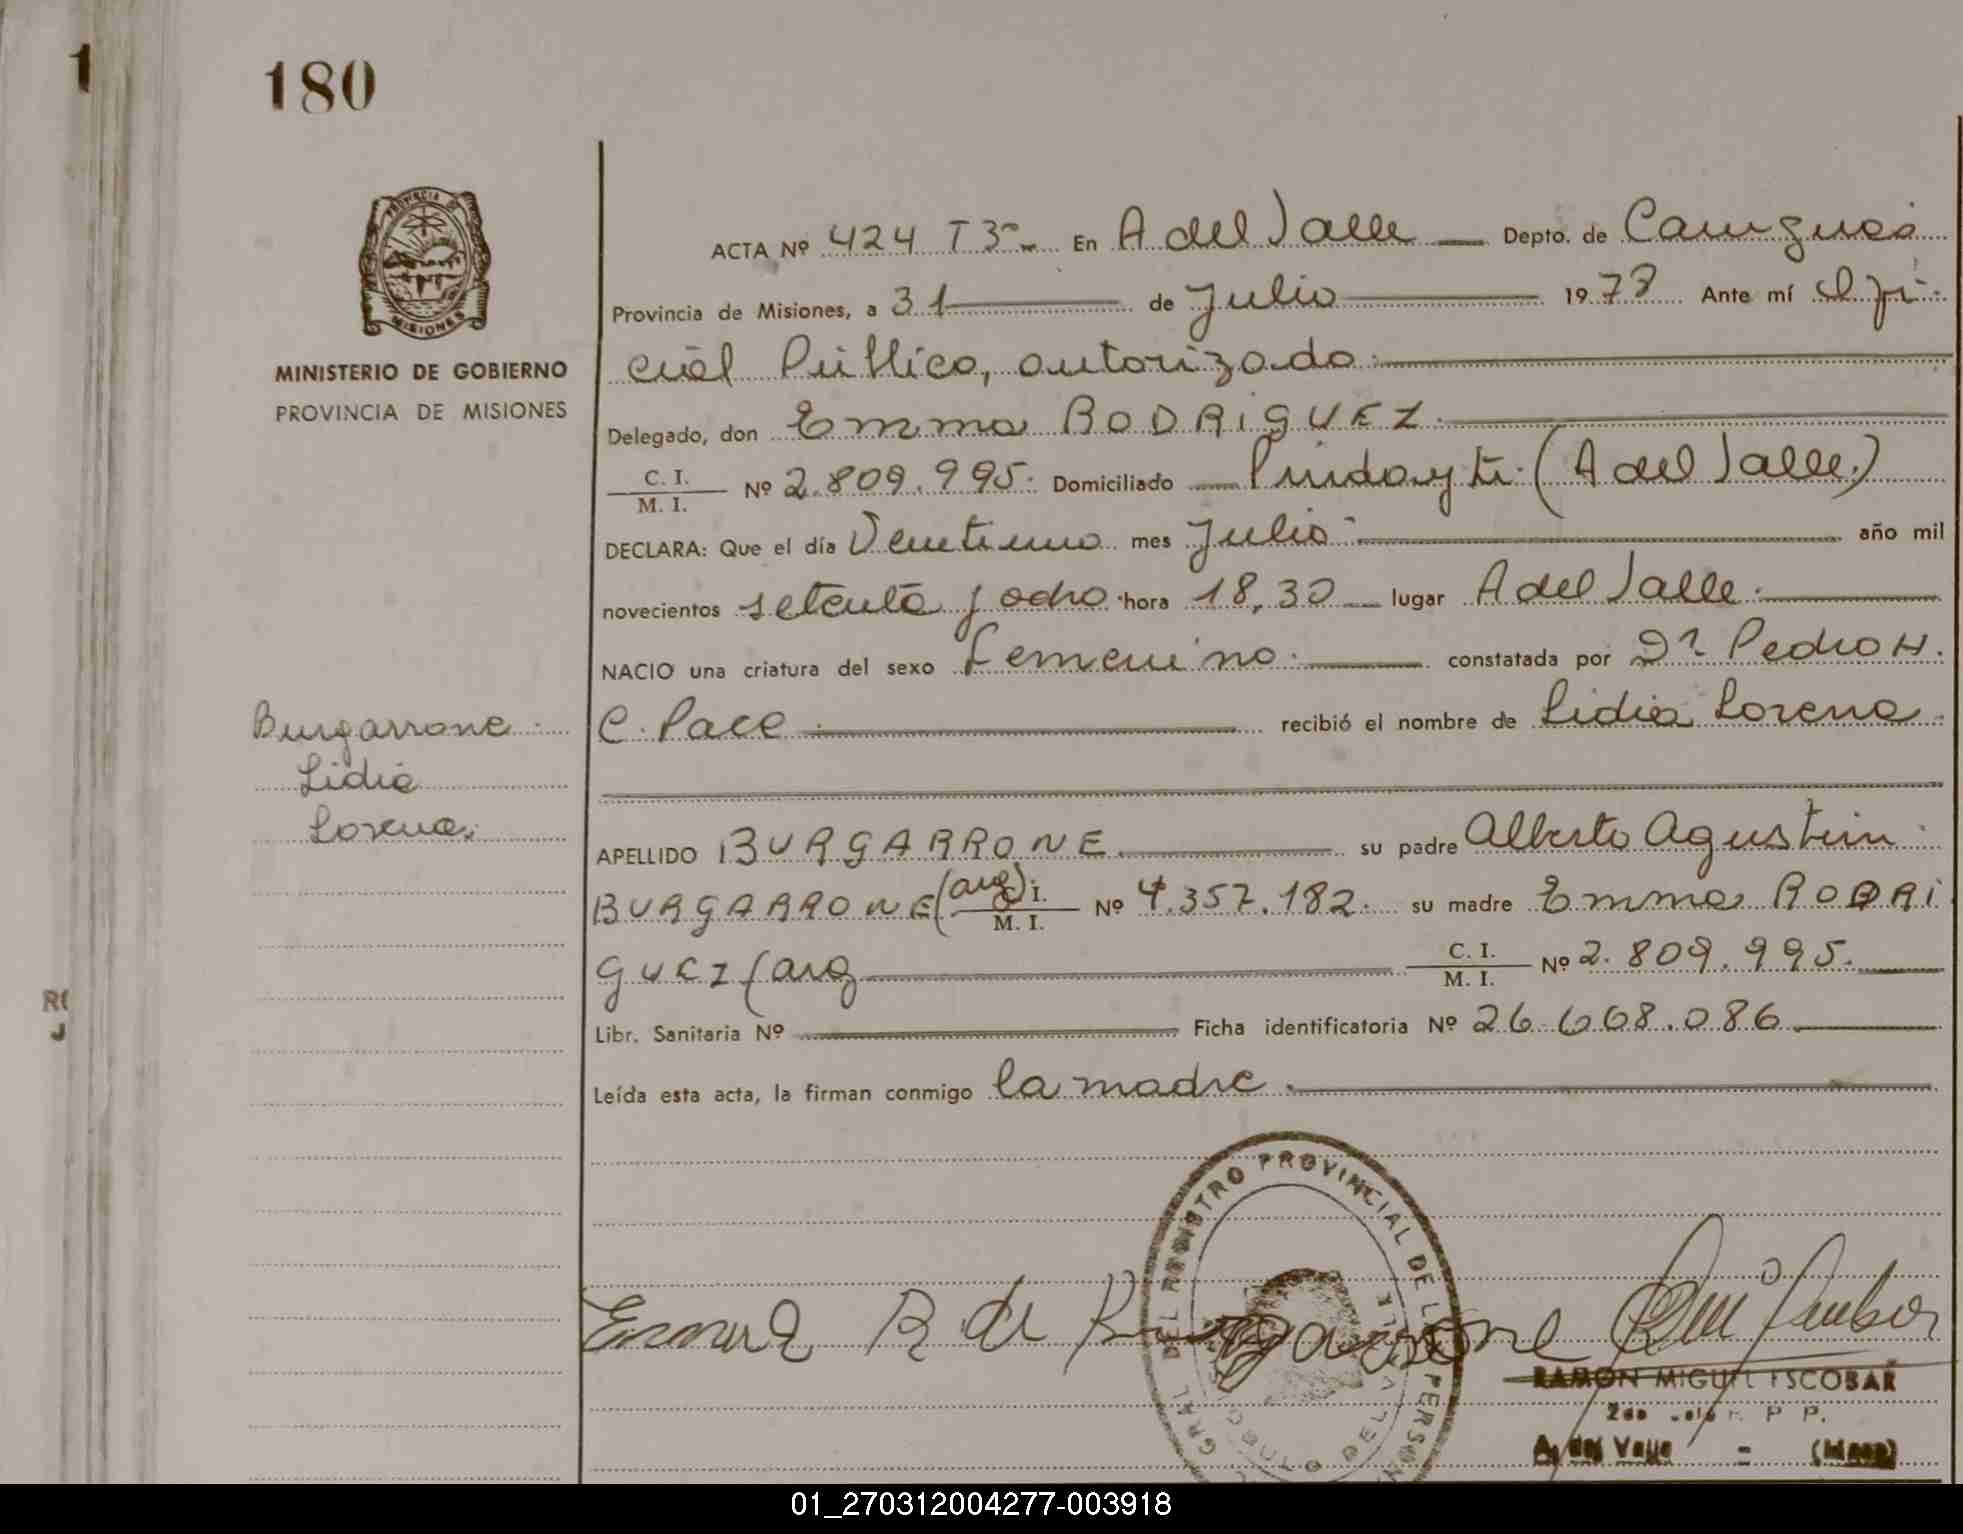 1
180
PROVINCIA DE
MISIONES
MINISTERIO DE GOBIERNO
PROVINCIA DE MISIONES
ACTA Nº 424 T 3º En A del Valle Depto. de Cainguás
Provincia de Misiones, a 31 de Julio 1978 Ante mí Ofi-
cial Público, autorizado
Delegado, don Emma RODRIGUEZ.
C. I.
M. I. Nº 2.809.995. Domiciliado Pindayti (A del Valle.)
DECLARA: Que el día Veintiuno mes Julio año mil
novecientos setenta y ocho hora 18,30 lugar A del Valle.
NACIO una criatura del sexo femenino. constatada por Dr Pedro H.
C. Pace recibió el nombre de Lidia Lorena
Burgarrone
Lidia
Lorena.
APELLIDO BURGARRONE. su padre Alberto Agustin
BURGARRONE (arg). C. I.
M. I. Nº 4.357.182. su madre Emma RODRI
GUEZ (arg C. I.
M. I. Nº 2.809.995.
RO
J
Libr. Sanitaria Nº Ficha identificatoria Nº 26.668.086
Leída esta acta, la firman conmigo la madre.
GRAL DEL REGISTRO PROVINCIAL DE
Emma R. de Burgarrone
RAMON MIGUEL ESCOBAR
A. del Valle - (Mnes)
01_270312004277-003918